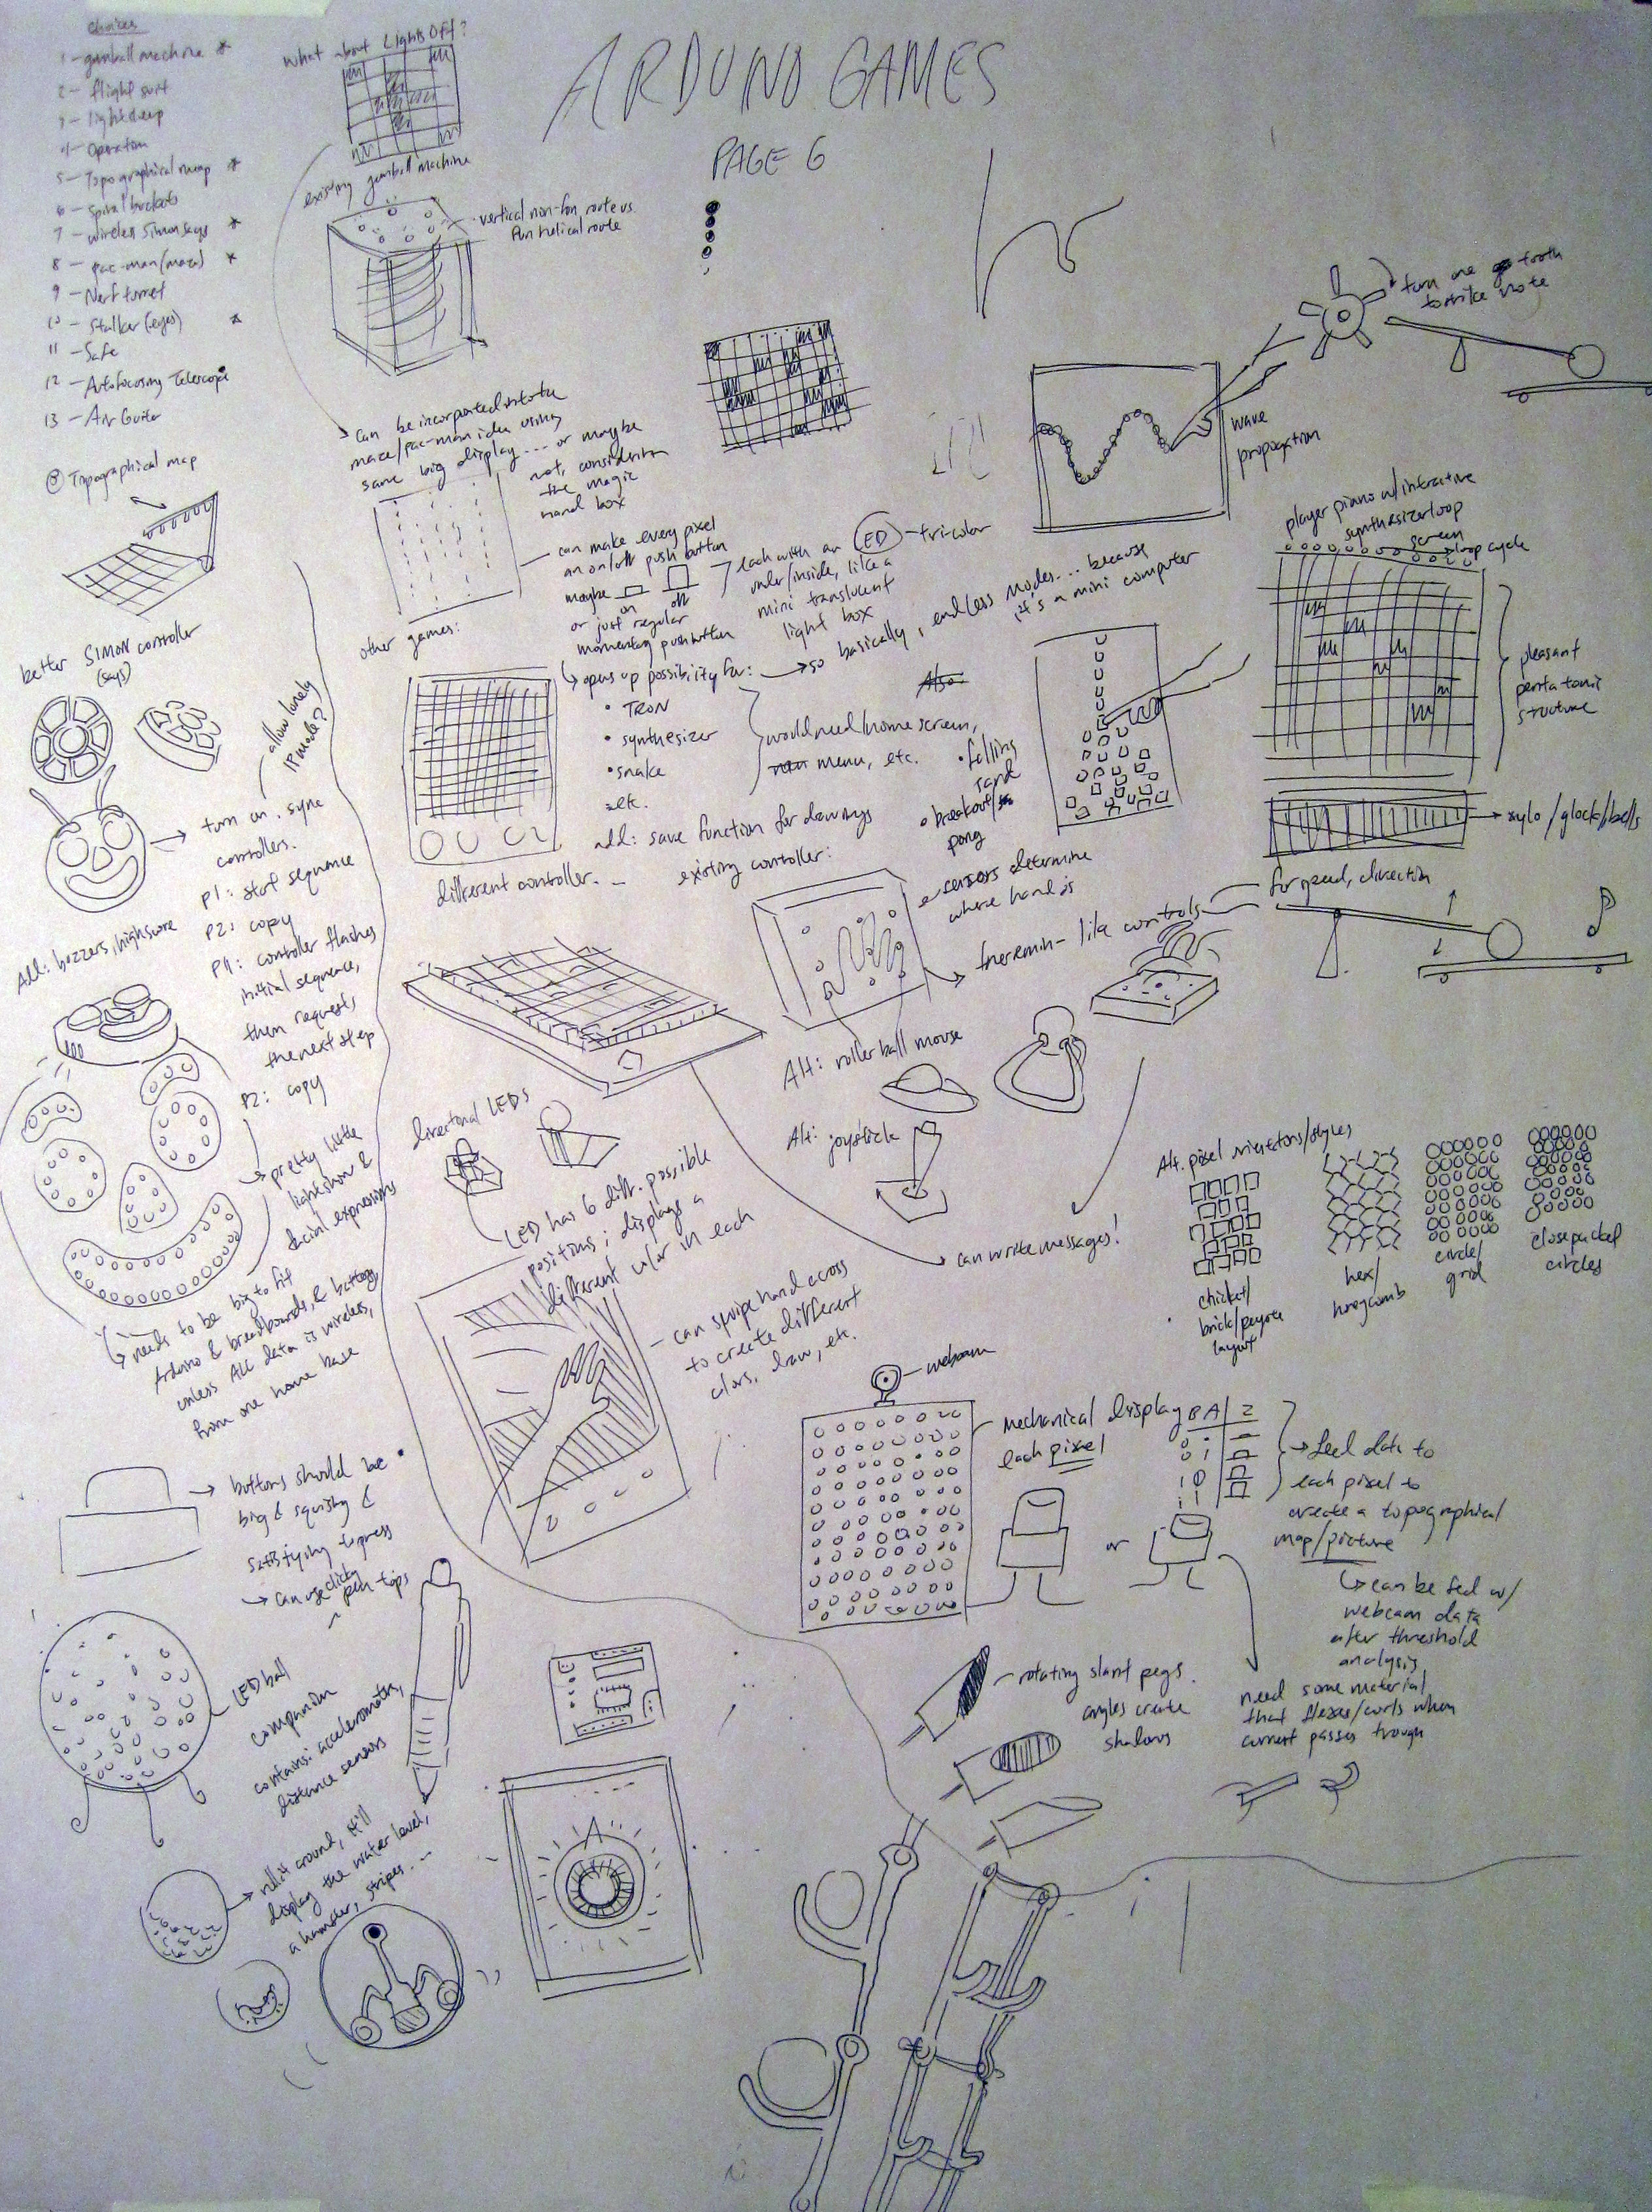 ARDUINO GAMES
PAGE 6
choices
1 - gumball machine *
2 - flight suit
4 - Operation
5 - Topographical map *
6 - Spiral buckets
7 - wireless Simon says *
8 - pac-man (maze) *
9 - Nerf turret
10 - Stalker (eyes) *
11 - Safe
12 - Autofocusing Telescope
13 - Air Guitar
What about Lights Off?
existing gumball machine
vertical non-fun route vs.
fun helical route
can be incorporated into the
maze/pac-man idea using
same big display... or maybe
not, considering
the magic
hand box
Topographical map
can make every pixel
an on/off push button
maybe
on off
or just regular
momentary pushbutton
each with an LED - tri-color
under/inside, like a
mini translucent
light box
opens up possibility for:
so basically, endless modes... because
it's a mini computer
• TRON
• synthesizer
• snake
etc.
would need home screen,
menu, etc.
Also:
• falling
sand
• breakout/
pong
add: save function for drawings
other games:
different controller...
existing controller:
sensors determine
where hand is
theremin-like controls
for speed, direction
Alt: rollerball mouse
Alt: joystick
can write messages!
turn one tooth
to strike note
wave
propagation
player piano w/ interactive
synthesizer loop
screen
loop cycle
pleasant
pentatonic
structure
xylo/glock/bells
better SIMON controller
(says)
allow lonely
1P mode?
turn on, sync
controllers.
P1: start sequence
P2: copy
P1: controller flashes
initial sequence,
then requests
the next step
P2: copy
Add: buzzers, highscore
pretty little
lightshow &
facial expressions
needs to be big to fit
Arduino & breadboards, & battery,
unless ALL data is wireless,
from one home base
directional LEDs
LED has 6 diff. possible
positions; displays a
different color in each
can swipe hand across
to create different
colors, draw, etc.
Alt. pixel orientations/styles
brick/peyote
layout
hex/
honeycomb
circle/
grid
close packed
circles
webcam
mechanical display
each pixel
B A Z
0 1
1 0
1 1
or
feed data to
each pixel to
create a topographical
map/picture
can be fed w/
webcam data
after threshold
analysis
need some material
that flexes/curls when
current passes trough
rotating slant pegs.
angles create
shadows
buttons should be
big & squishy &
satisfying to press
can use clicky
pen tops
LED ball
companion
contains: accelerometer,
distance sensors
roll it around, it'll
display the water level,
a hamster, stripes...